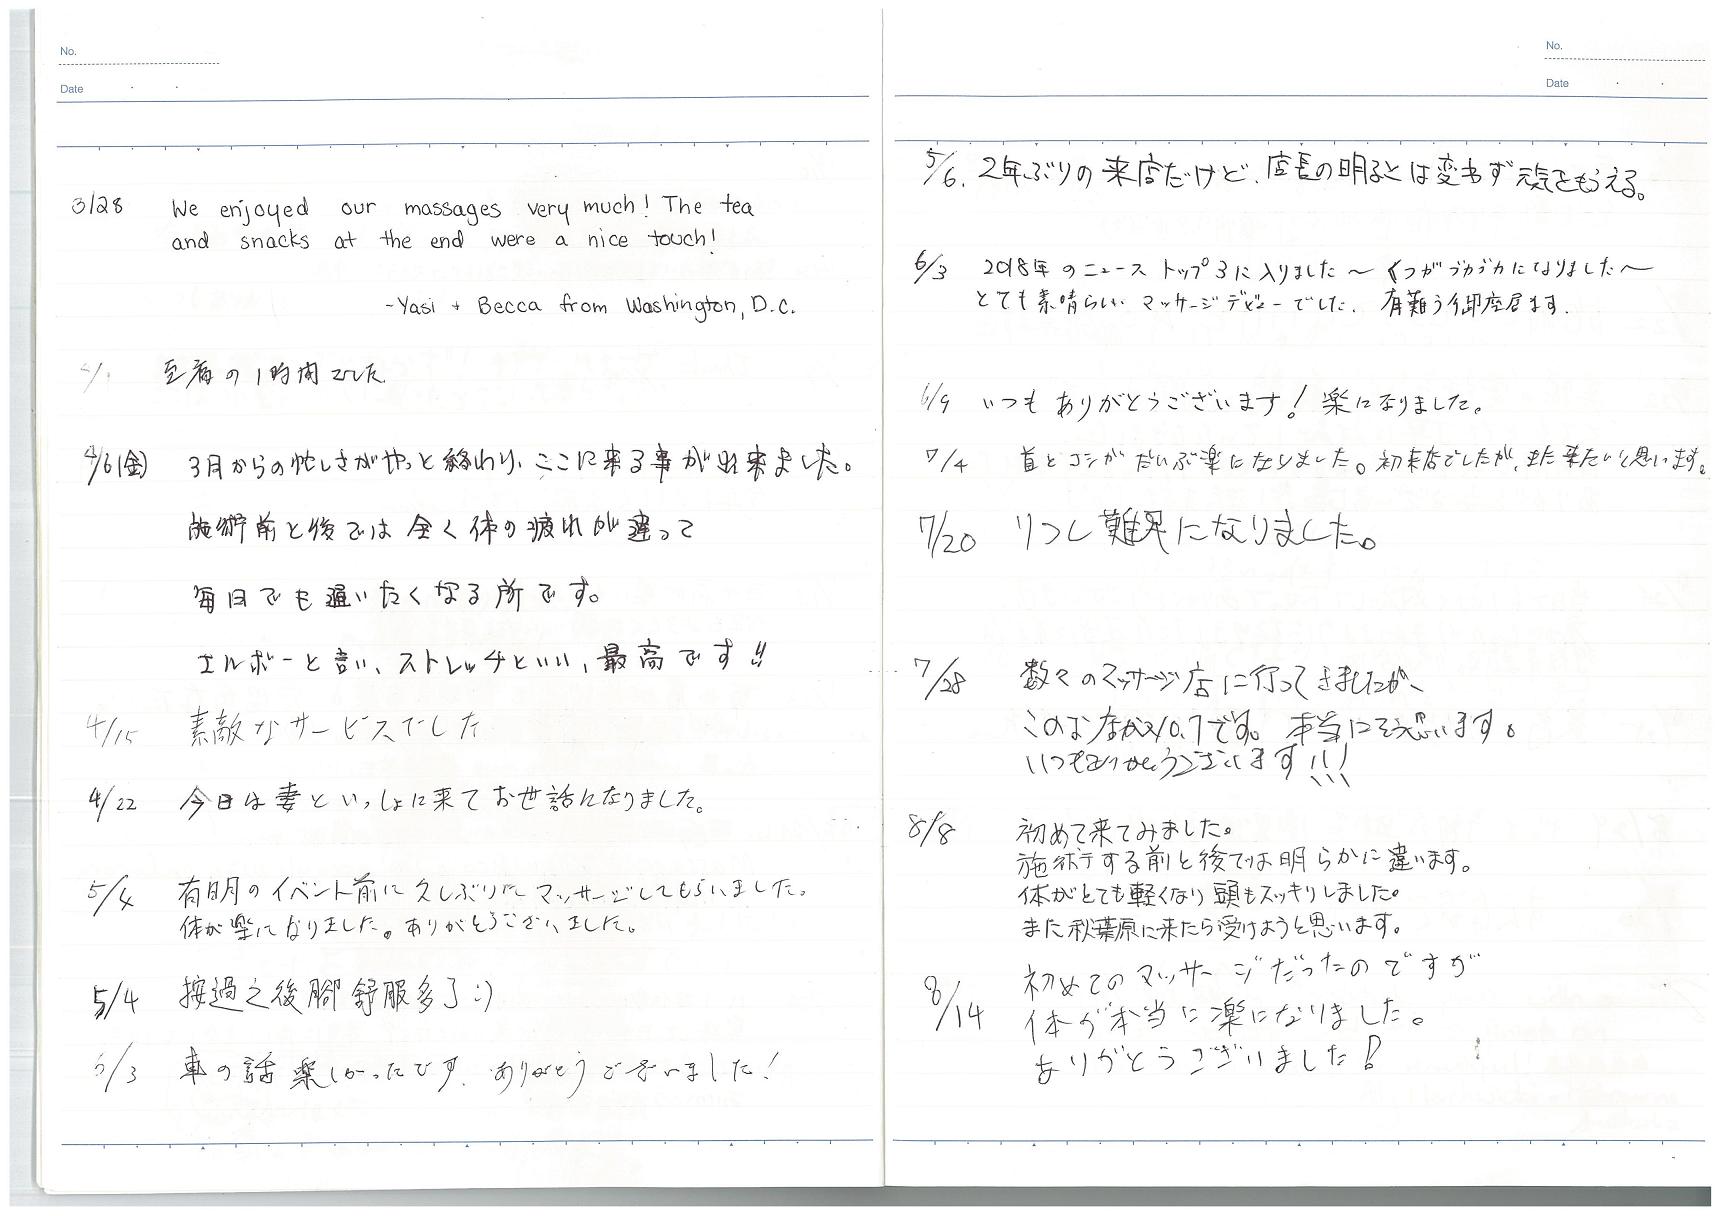 No.
Date
3/28 We enjoyed our massages very much! The tea
and snacks at the end were a nice touch!
~Yasi + Becca from Washington, D.C.
至福の1時間でした
4/6(金) 3月からの忙しさがやっと終わり、ここに来る事が出来ました。
施術前と後では全く体の疲れが違って
毎日でも通いたくなる所です。
エルボーと言い、ストレッチといい、最高です!!
4/15 素敵なサービスでした
4/22 今日は妻といっしょに来てお世話になりました。
5/4 有明のイベント前に久しぶりにマッサージしてもらいました。
体が楽になりました。ありがとうございました。
5/4 按過之後腳舒服多了:)
6/3 車の話楽しかったです。ありがとうございました!
No.
Date
5/6. 2年ぶりの来店だけど、店長の明るさは変わず元気をもらえる。
6/3 2018年のニューストップ3に入りました〜 くつがブカブカになりました〜
とても素晴らしいマッサージデビューでした。有難う御座居ます.
6/9 いつもありがとうございます! 楽になりました。
7/4 首とコシがだいぶ楽になりました。初来店でしたが、また来たいと思います。
7/20 になりました。
7/28 数々のマッサージ店に行ってきましたが、
このお店がNo.1です。本当にそう思います。
いつもありがとうございます!!!
8/8 初めて来てみました。
施術する前と後では明らかに違います。
体がとても軽くなり頭もスッキリしました。
また秋葉原に来たら受けようと思います。
8/14 初めてのマッサージだったのですが
体が本当に楽になりました。
ありがとうございました!